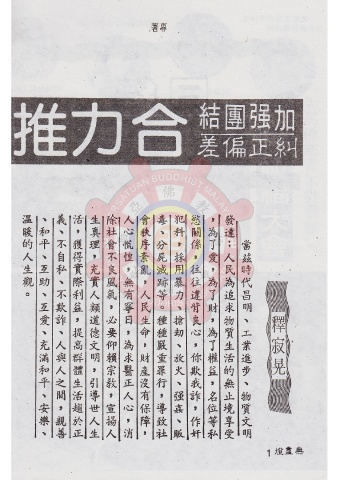 專著
加强團結
糾正偏差
合力推
釋寂晃
當兹時代昌明、工業進步、物質文明
發達;人民為追求物質生活的無止境享受
,為了愛,為了財,為了權益,名位等私
慾關係,往往違背良心,你欺我詐,作奸
犯科,採用暴力、搶劫、放火、强姦、販
毒、分屍滅跡等。種種嚴重罪行,導致社
會秩序紊亂,人民生命,財產沒有保障,
人心慌惶,無有寧日。為求醫正人心,消
除社會不良風氣,必要仰賴宗教,宣揚人
生真理,充實人類道德文明,引導世人生
活,獲得實際利益,提高羣體生活超於正
義、不自私、不欺詐,人與人之間,親善
、和平、互助、互愛、充滿和平、安樂、
溫暖的人生觀。
無盡燈 1